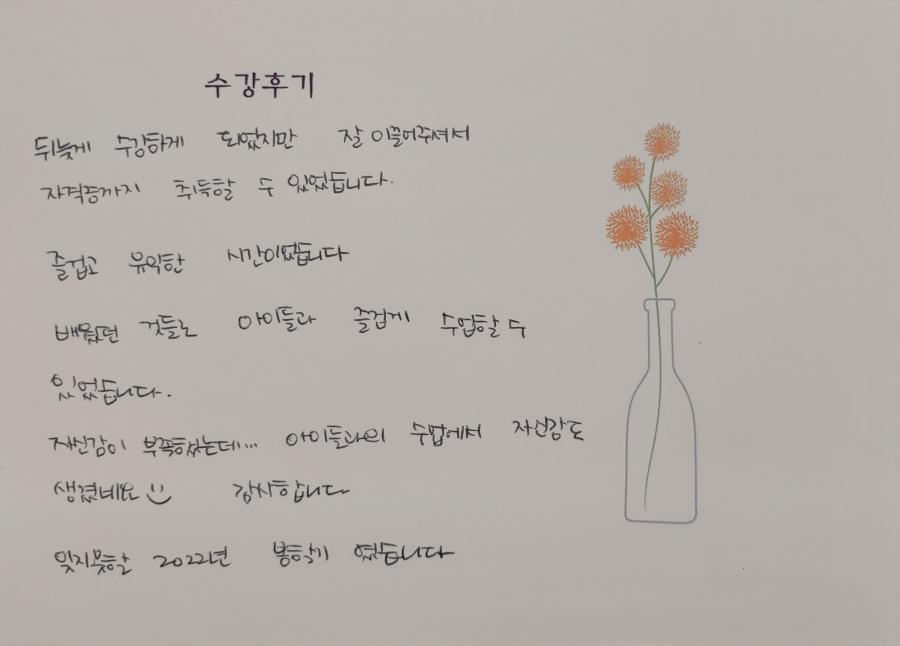 수강후기
뒤늦게 수강하게 되었지만 잘 이끌어주셔서
자격증까지 취득할 수 있었습니다.
즐겁고 유익한 시간이었습니다
배웠던 것들로 아이들과 즐겁게 수업할 수
있었습니다.
자신감이 부족했는데... 아이들과의 수업에서 자신감도
생겼네요 감사합니다
잊지못할 2022년 봄학기 였습니다